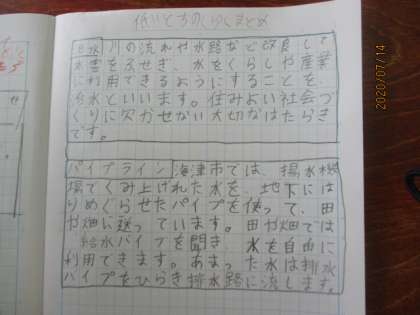 低いとちのくらしまとめ
治水 川の流れや水路など改良して
水害をふせぎ、水をくらしや産業
に利用できるようにすることを、
治水といいます。住みよい社会づ
くりに欠かせない大切なはたらき
です。
パイプライン 海津市では、揚水機
場でくみ上げられた水を、地下には
りめぐらせたパイプを使って、田
や畑に送っています。田や畑では
給水パイプを開き、水を自由に
利用できます。あまった水は排水
パイプをひらき排水路に流します。
2020/07/14